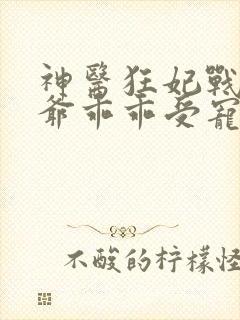 神醫狂妃戰
爺乖乖受寵
不酸的柠檬怪